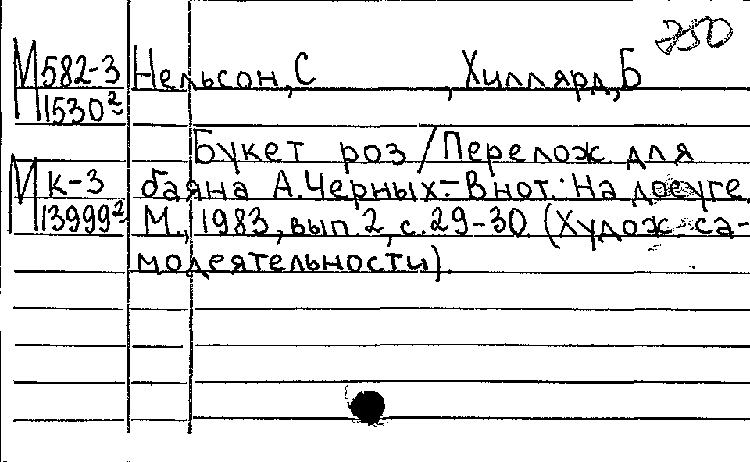 250
М 582-3 Нельсон, С , Хиллярд, Б
М 1530²
Букет роз / Перелож. для
М К-3 баяна А. Черных.- В нот.: На досуге.
М 13999² М., 1983, вып. 2, с. 29-30. (Худож. са-
модеятельности).